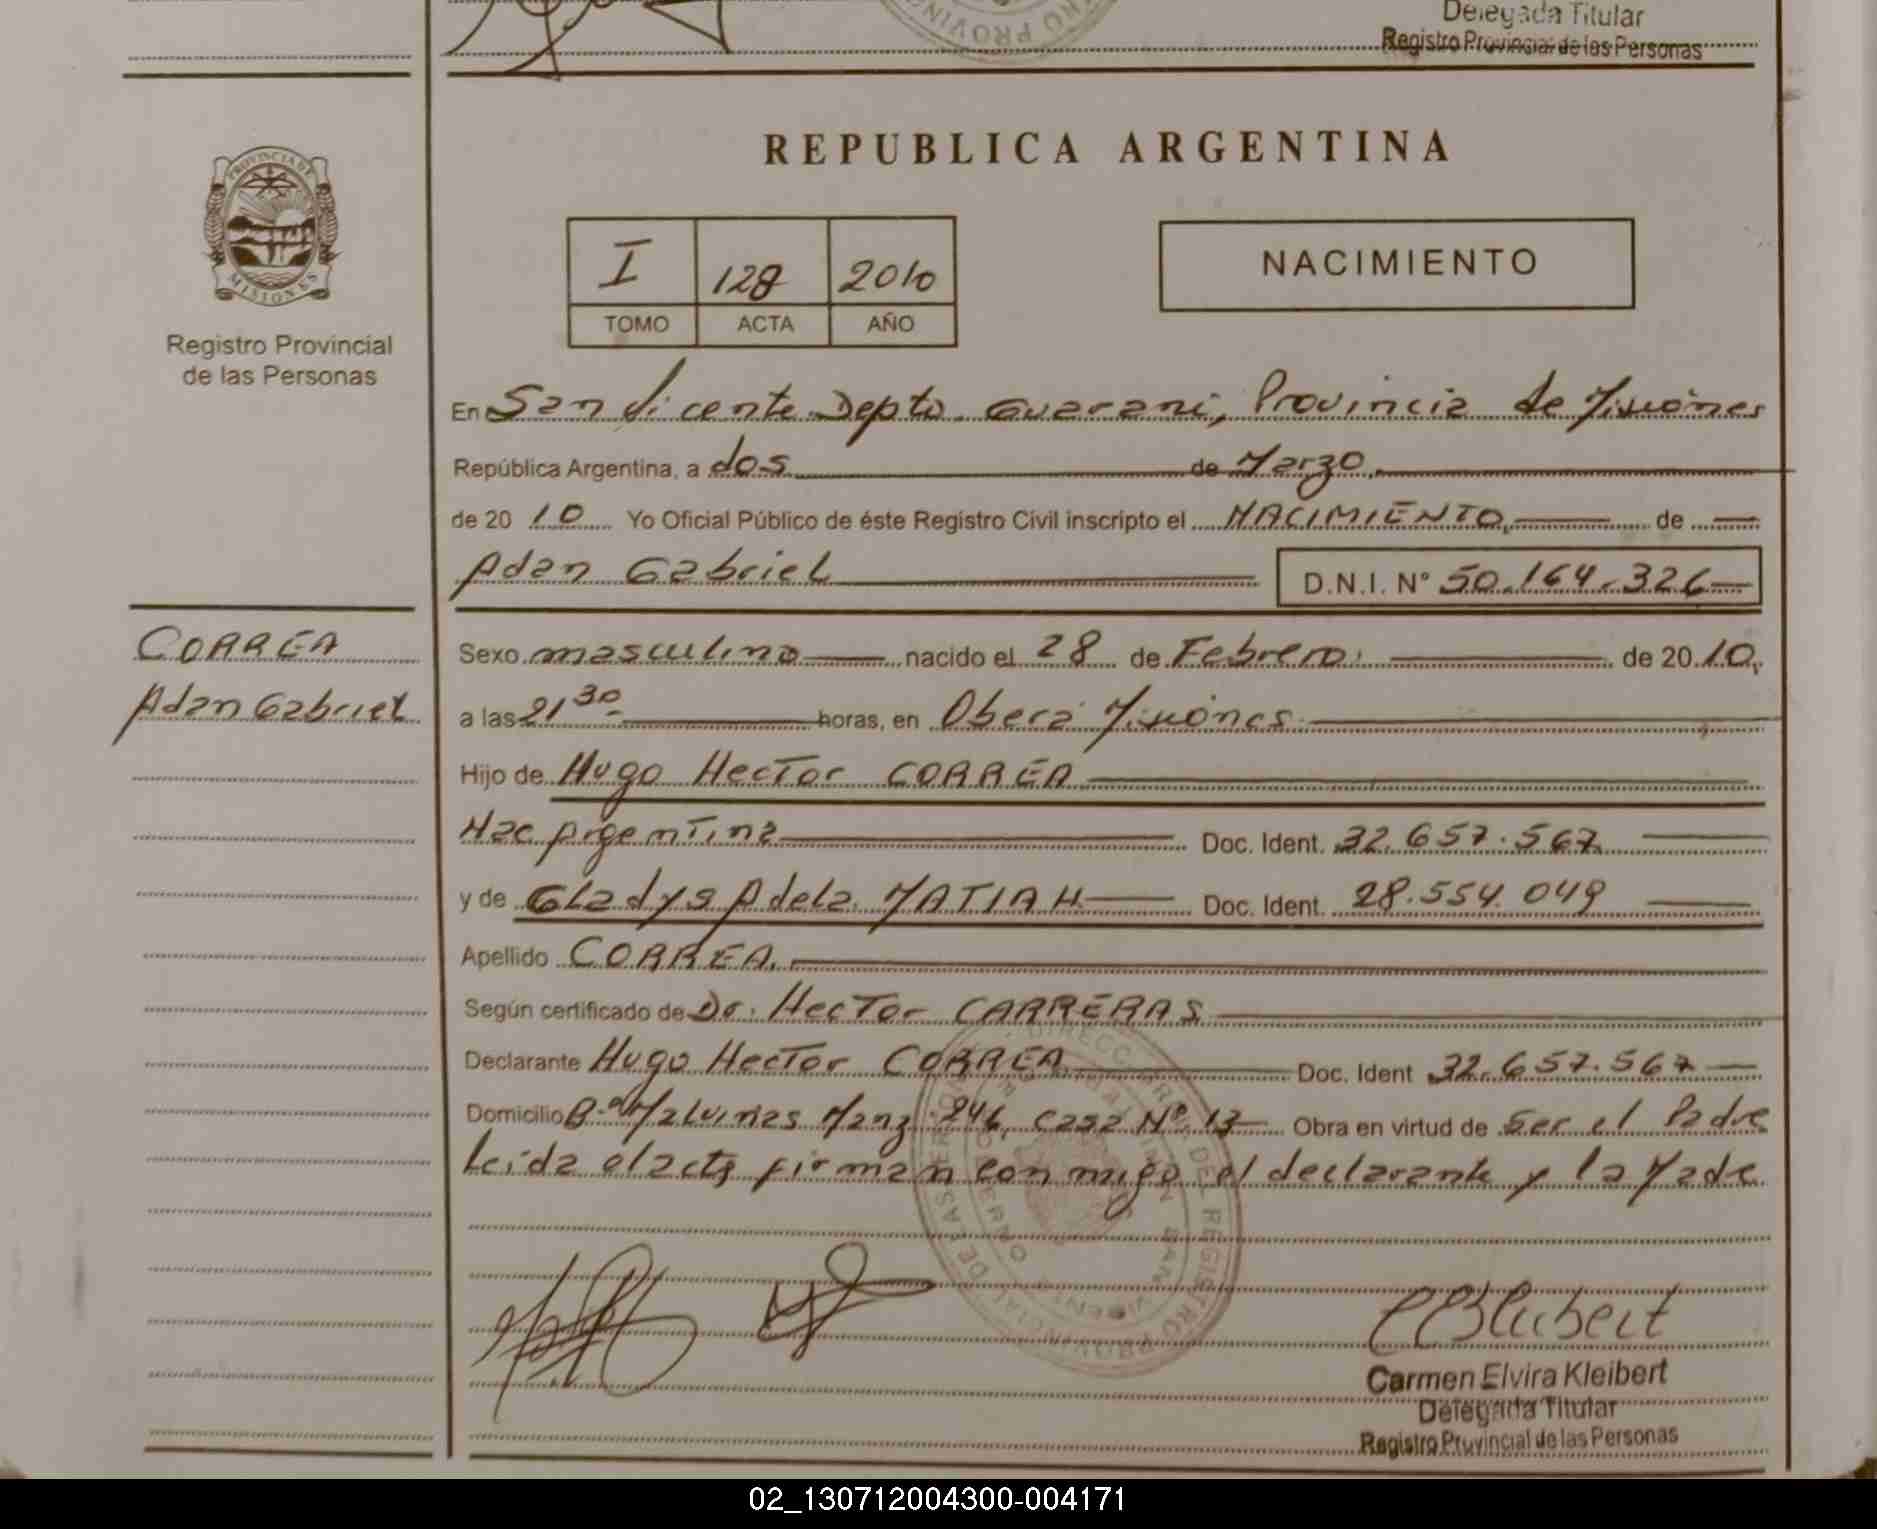 Delegada Titular
Registro Provincial de las Personas
REPUBLICA ARGENTINA
PROVINCIA DE
MISIONES
I 128 2010
TOMO ACTA AÑO
NACIMIENTO
Registro Provincial
de las Personas
En San Vicente Depto. Guarani, Provincia de Misiones
República Argentina, a dos de Marzo
de 20 10 Yo Oficial Público de éste Registro Civil inscripto el NACIMIENTO de
Adan Gabriel D.N.I. N° 50.164.326
CORREA
Adan Gabriel
Sexo masculino nacido el 28 de Febrero de 20 10,
a las 21 30 horas, en Oberá Misiónes
Hijo de Hugo Hector CORREA
Nac Argentina Doc. Ident. 32.657.567
y de Gladys Adela MATIAH Doc. Ident. 28.554.049
Apellido CORREA.
Según certificado de Dr. Hector CARRERAS
Declarante Hugo Hector CORREA Doc. Ident 32.657.567
Domicilio B.º Malvinas Manz. 246, casa Nº 13 Obra en virtud de Ser el Padre
Leida el acta firman con migo el declarante y la Madre
CBKleibert
Carmen Elvira Kleibert
Delegada Titular
Registro Provincial de las Personas
02_130712004300-004171